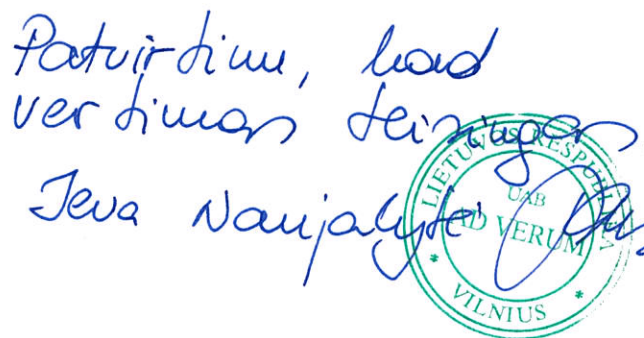 Patvirtinu, kad
vertimas teisingas
Ieva Naujalytė
LIETUVOS RESPUBLIKA
UAB
AD VERUM
* VILNIUS *